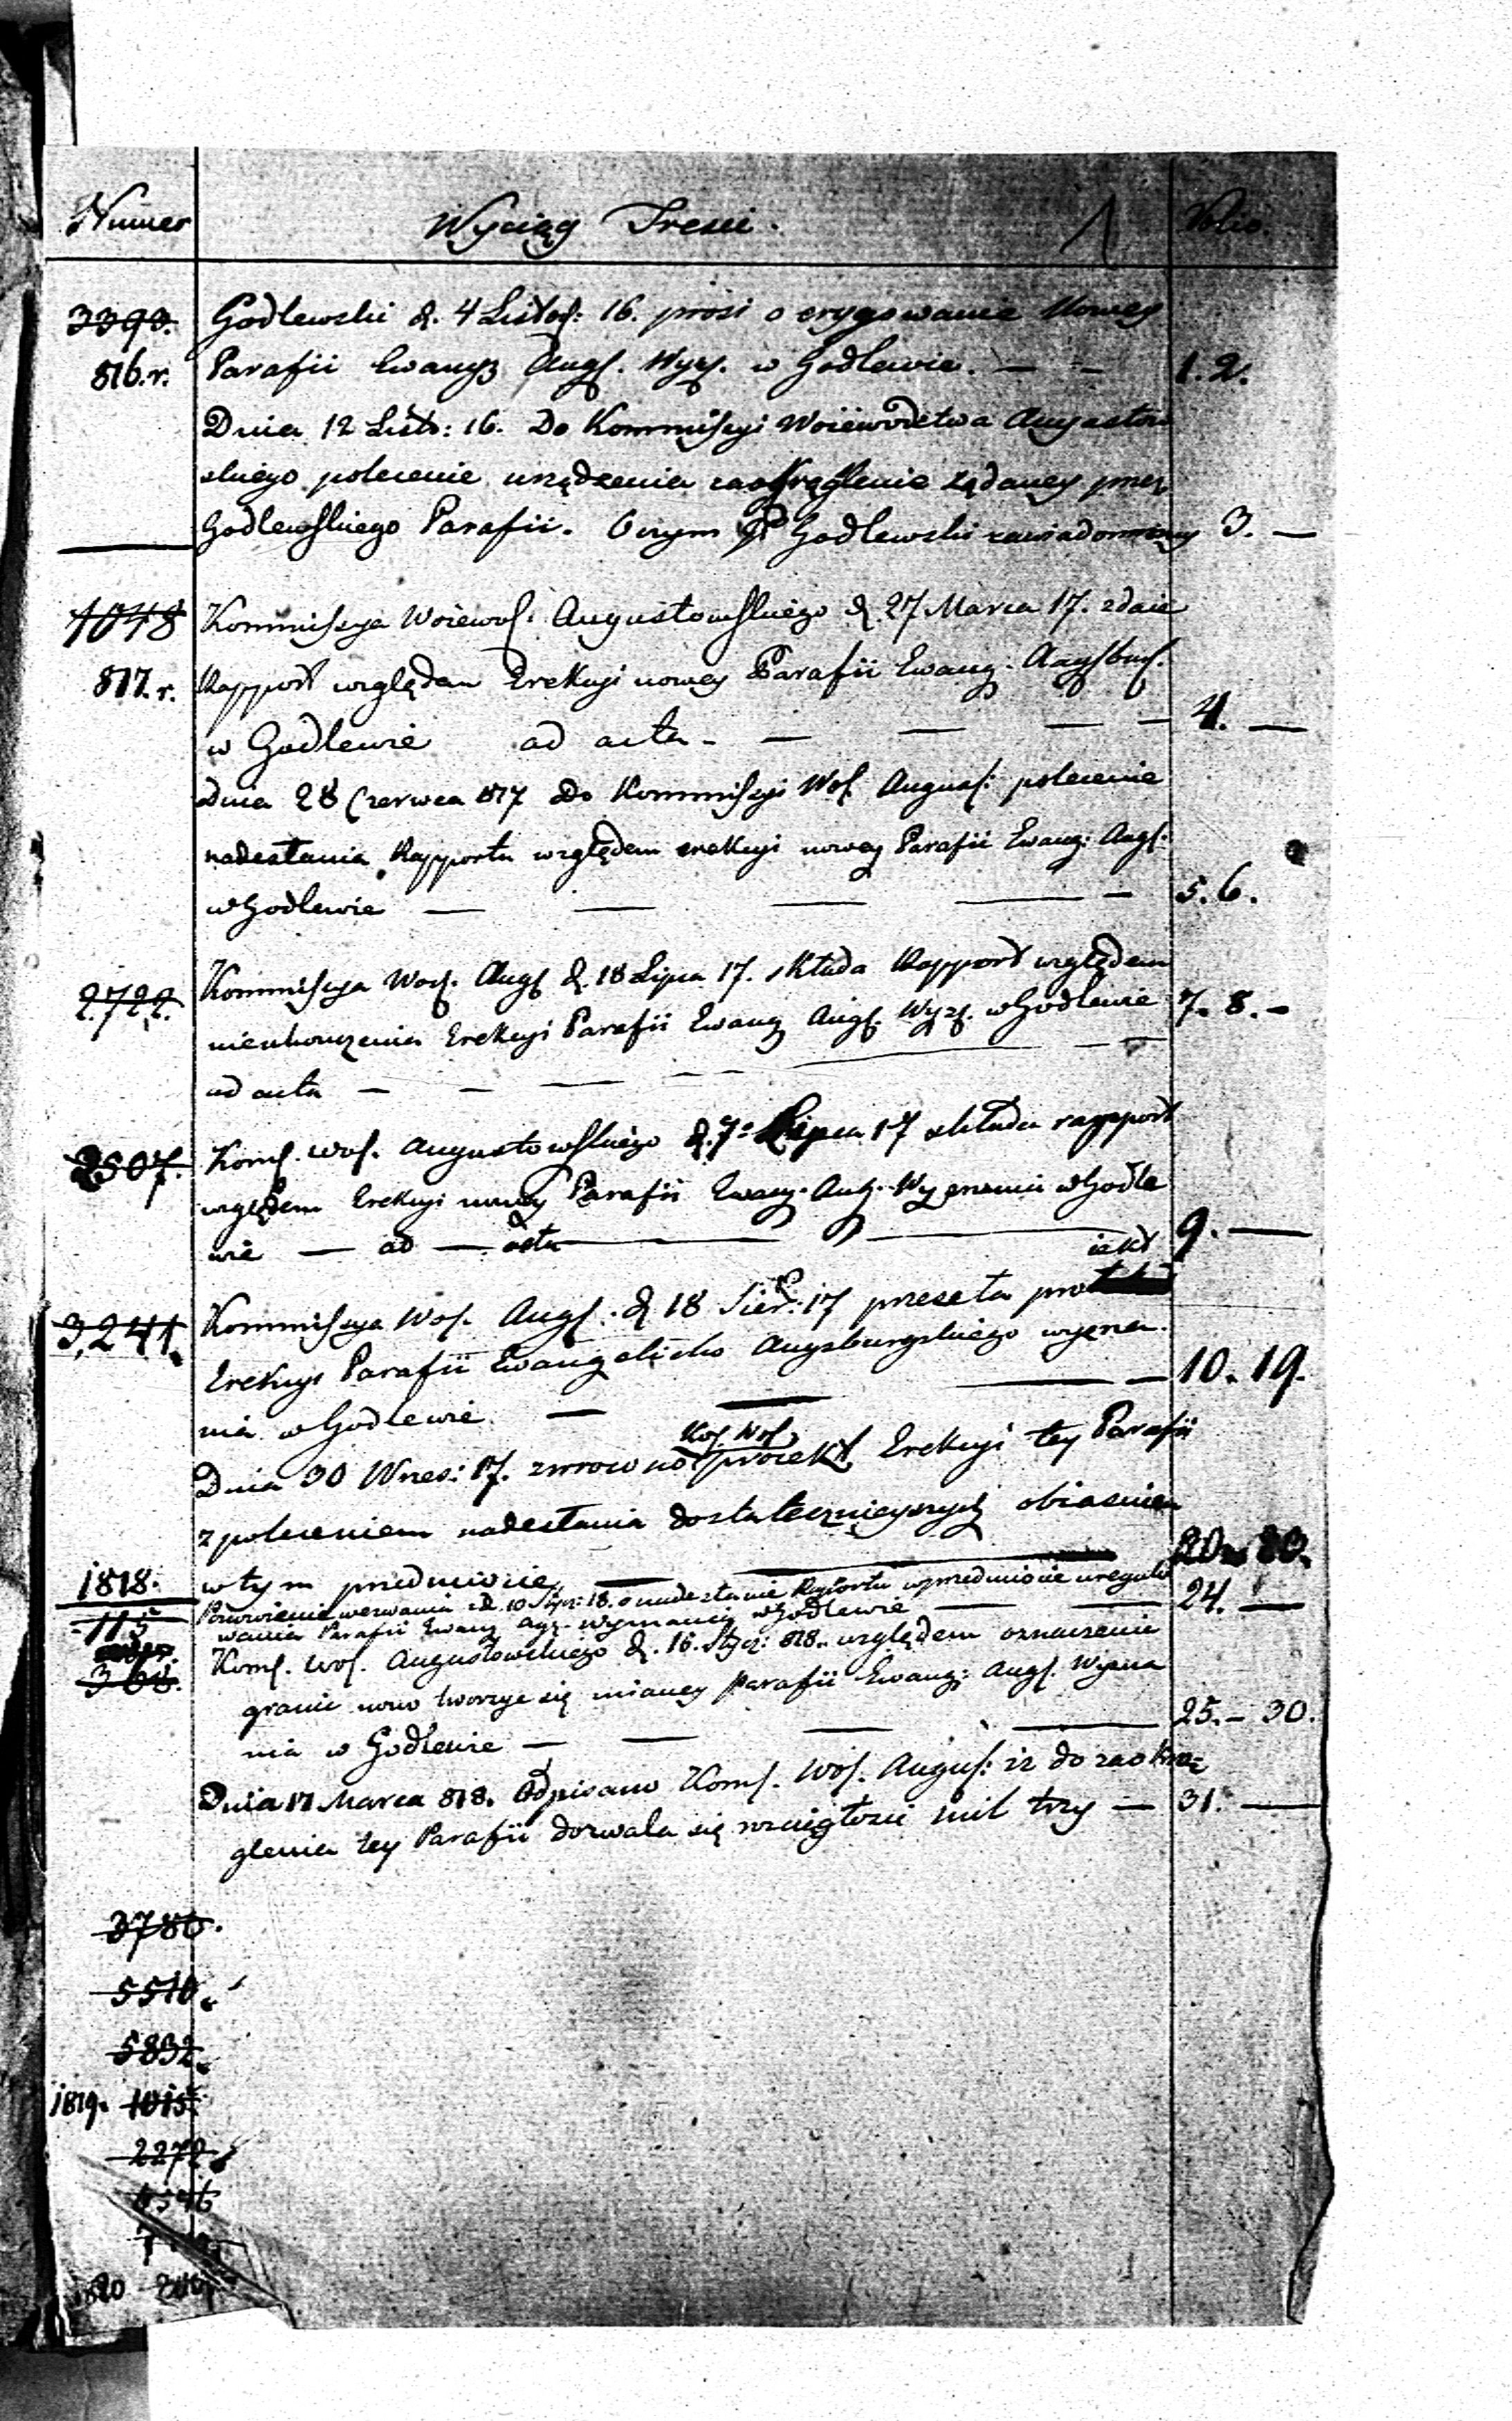 Numer Wyciąg Tresci. Folio.
3393. Godlewski d. 4 Listop: 16. prosi o erygowanie Nowey
816.r. Parafii Ewang Augs. Wyz. w Godlewie. — — 1.2.
Dnia 12 Listo: 16. Do Kommissyi Woiewodztwa Augustow
skiego polecenie urządzenia zaokrąglenie żądaney przez
Godlewskiego Parafii. O czym Godlewski zawiadomiony 3. —
1048 Kommissya Woiewod: Augustowskiego d. 27 Marca 17. zdaie
817.r. Rapport względem Erekcyi nowey Parafii Ewang: Augsbur.
w Godlewie ad acta — — — — 4. —
Dnia 28 Czerwca 817 do Kommissyi Wof. Augus: polecenie
nadesłania Rapportu względem erekcyi nowey Parafii Ewang: Augs:
w Godlewie — — — — — 5.6.
2722. Kommissya Wof. Aug d. 18 Lipca 17. składa Rapport względem
nieukończenia Erekcyi Parafii Ewang Augs. Wyz. w Godlewie 7. 8. —
ad acta — — — — — —
2507. Koms. Wof. Augustowskiego d. 7 Lipca 17 składa rapport
wzgędem Erekcyi nowey Parafii Ewang. Aug. Wyznania w Godle
wie — ad — acta — — 9. —
iekt
3,241. Kommissya Wof. Augs: d 18 Sier: 17 przeseła pro
Erekcyi Parafii Ewangelicko Augsburgskiego wyzna
nia w Godlewie. — — — — 10. 19.
Kof. Wof.
Dnia 30 Wrzes: 17. zwrocono proiekt Erekcyi tey Parafii
z poleceniem nadesłania dostatecznieyszych obiasnien
1818. w tym przedmiocie — — 20. 23.
115 Ponowienie wezwania d. 10 Stycz: 18. o nadesłanie Raportu w przedmiocie uregulo
wania Parafii Ewang Ags. Wyznania w Godlewie — — 24. —
368. Koms. Wof. Augustowskiego d. 16. Stycz: 818. względem oznaczenie
granic nowo tworzyc się maiącey Parafii Ewang: Augs. Wyzna
nia w Godlewie — — — — 25. — 30.
Dnia 17 Marca 818. Odpisano Koms. Wof. Augus: iz do zaokrą
glenia tey Parafii dozwala się rozciągłosci mil trzy — 31. —
3780.
5510.
5832.
1819. 1015.
2272
6546